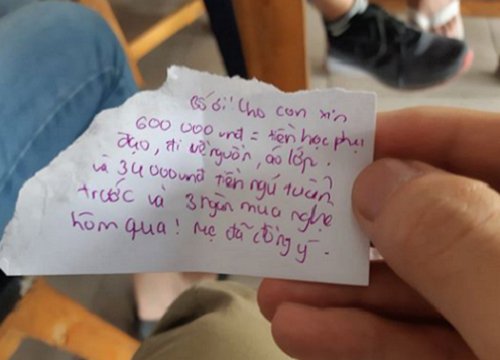 Bố ơi! Cho con xin
600 000 vnđ = tiền học phụ
đạo, đi về nguồn, áo lớp.
và 34 000 vnđ tiền ngủ tuần
trước và 3 ngàn mua nghệ
hôm qua! Mẹ đã đồng ý.